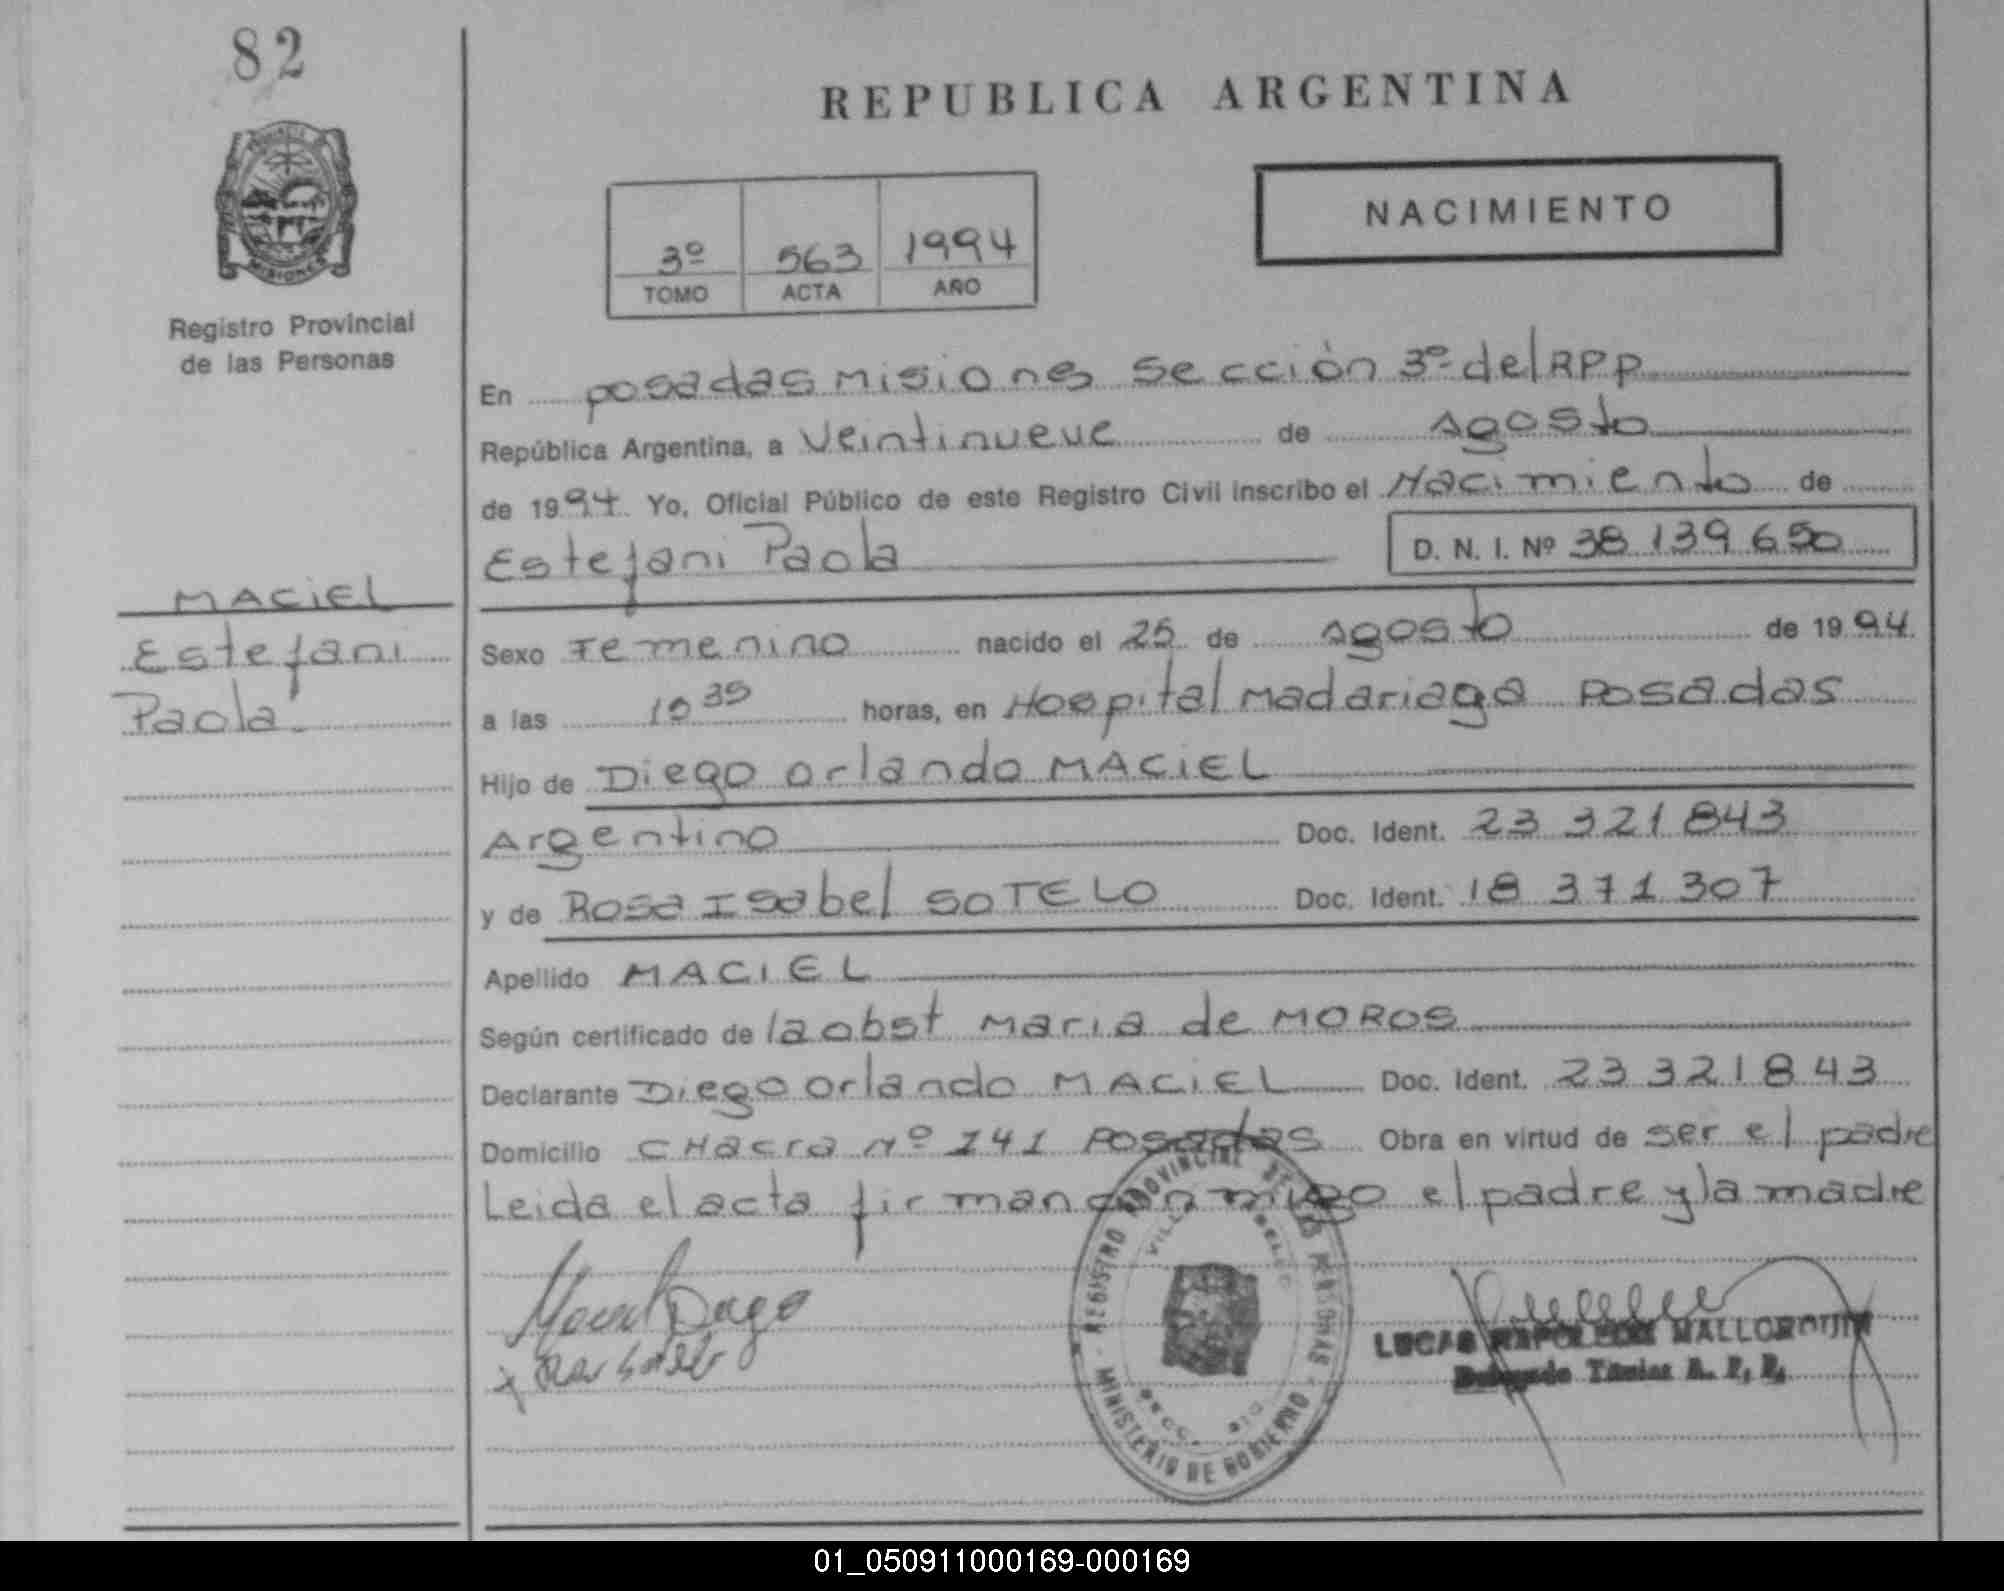 82
MISIONES
Registro Provincial
de las Personas
MACIEL
Estefani
Paola
REPUBLICA ARGENTINA
3º 563 1994
TOMO ACTA AÑO
NACIMIENTO
En posadas misiones sección 3º del RPP
República Argentina, a veintinueve de agosto
de 1994 Yo, Oficial Público de este Registro Civil inscribo el Nacimiento de
Estefani Paola D. N. I. Nº 38 139 650
Sexo Femenino nacido el 25 de agosto de 1994
a las 10 35 horas, en Hospital Madariaga Posadas
Hijo de Diego Orlando MACIEL
Argentino Doc. Ident. 23 321 843
y de Rosa Isabel SOTELO Doc. Ident. 18 371 307
Apellido MACIEL
Según certificado de la obst Maria de MOROS
Declarante Diego Orlando MACIEL Doc. Ident. 23 321 843
Domicilio CHacra Nº 141 Posadas Obra en virtud de ser el padre
Leida el acta firman conmigo el padre y la madre
REGISTRO PROVINCIAL DE LAS PERSONAS - MINISTERIO DE GOBIERNO
LUCAS NAPOLEON MALLORQUIN
01_050911000169-000169